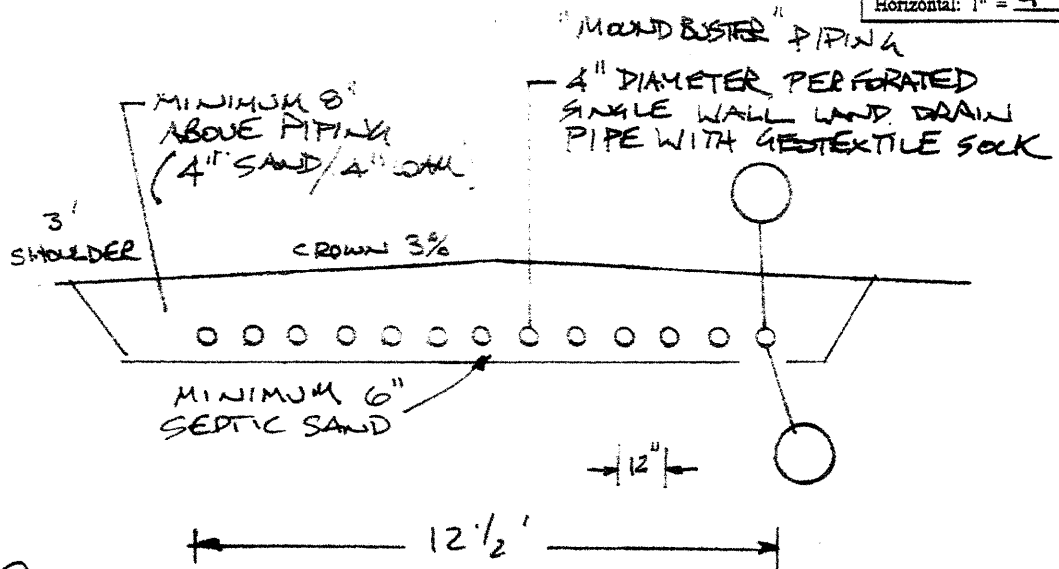 Horizontal: 1" =
"MOUNDBUSTER" PIPING
4" DIAMETER PERFORATED
SINGLE WALL LAND DRAIN
PIPE WITH GEOTEXTILE SOCK
MINIMUM 8"
ABOVE PIPING
4" SAND/4" LOAM
3'
SHOULDER
CROWN 3%
MINIMUM 6"
SEPTIC SAND
12"
12 1/2'